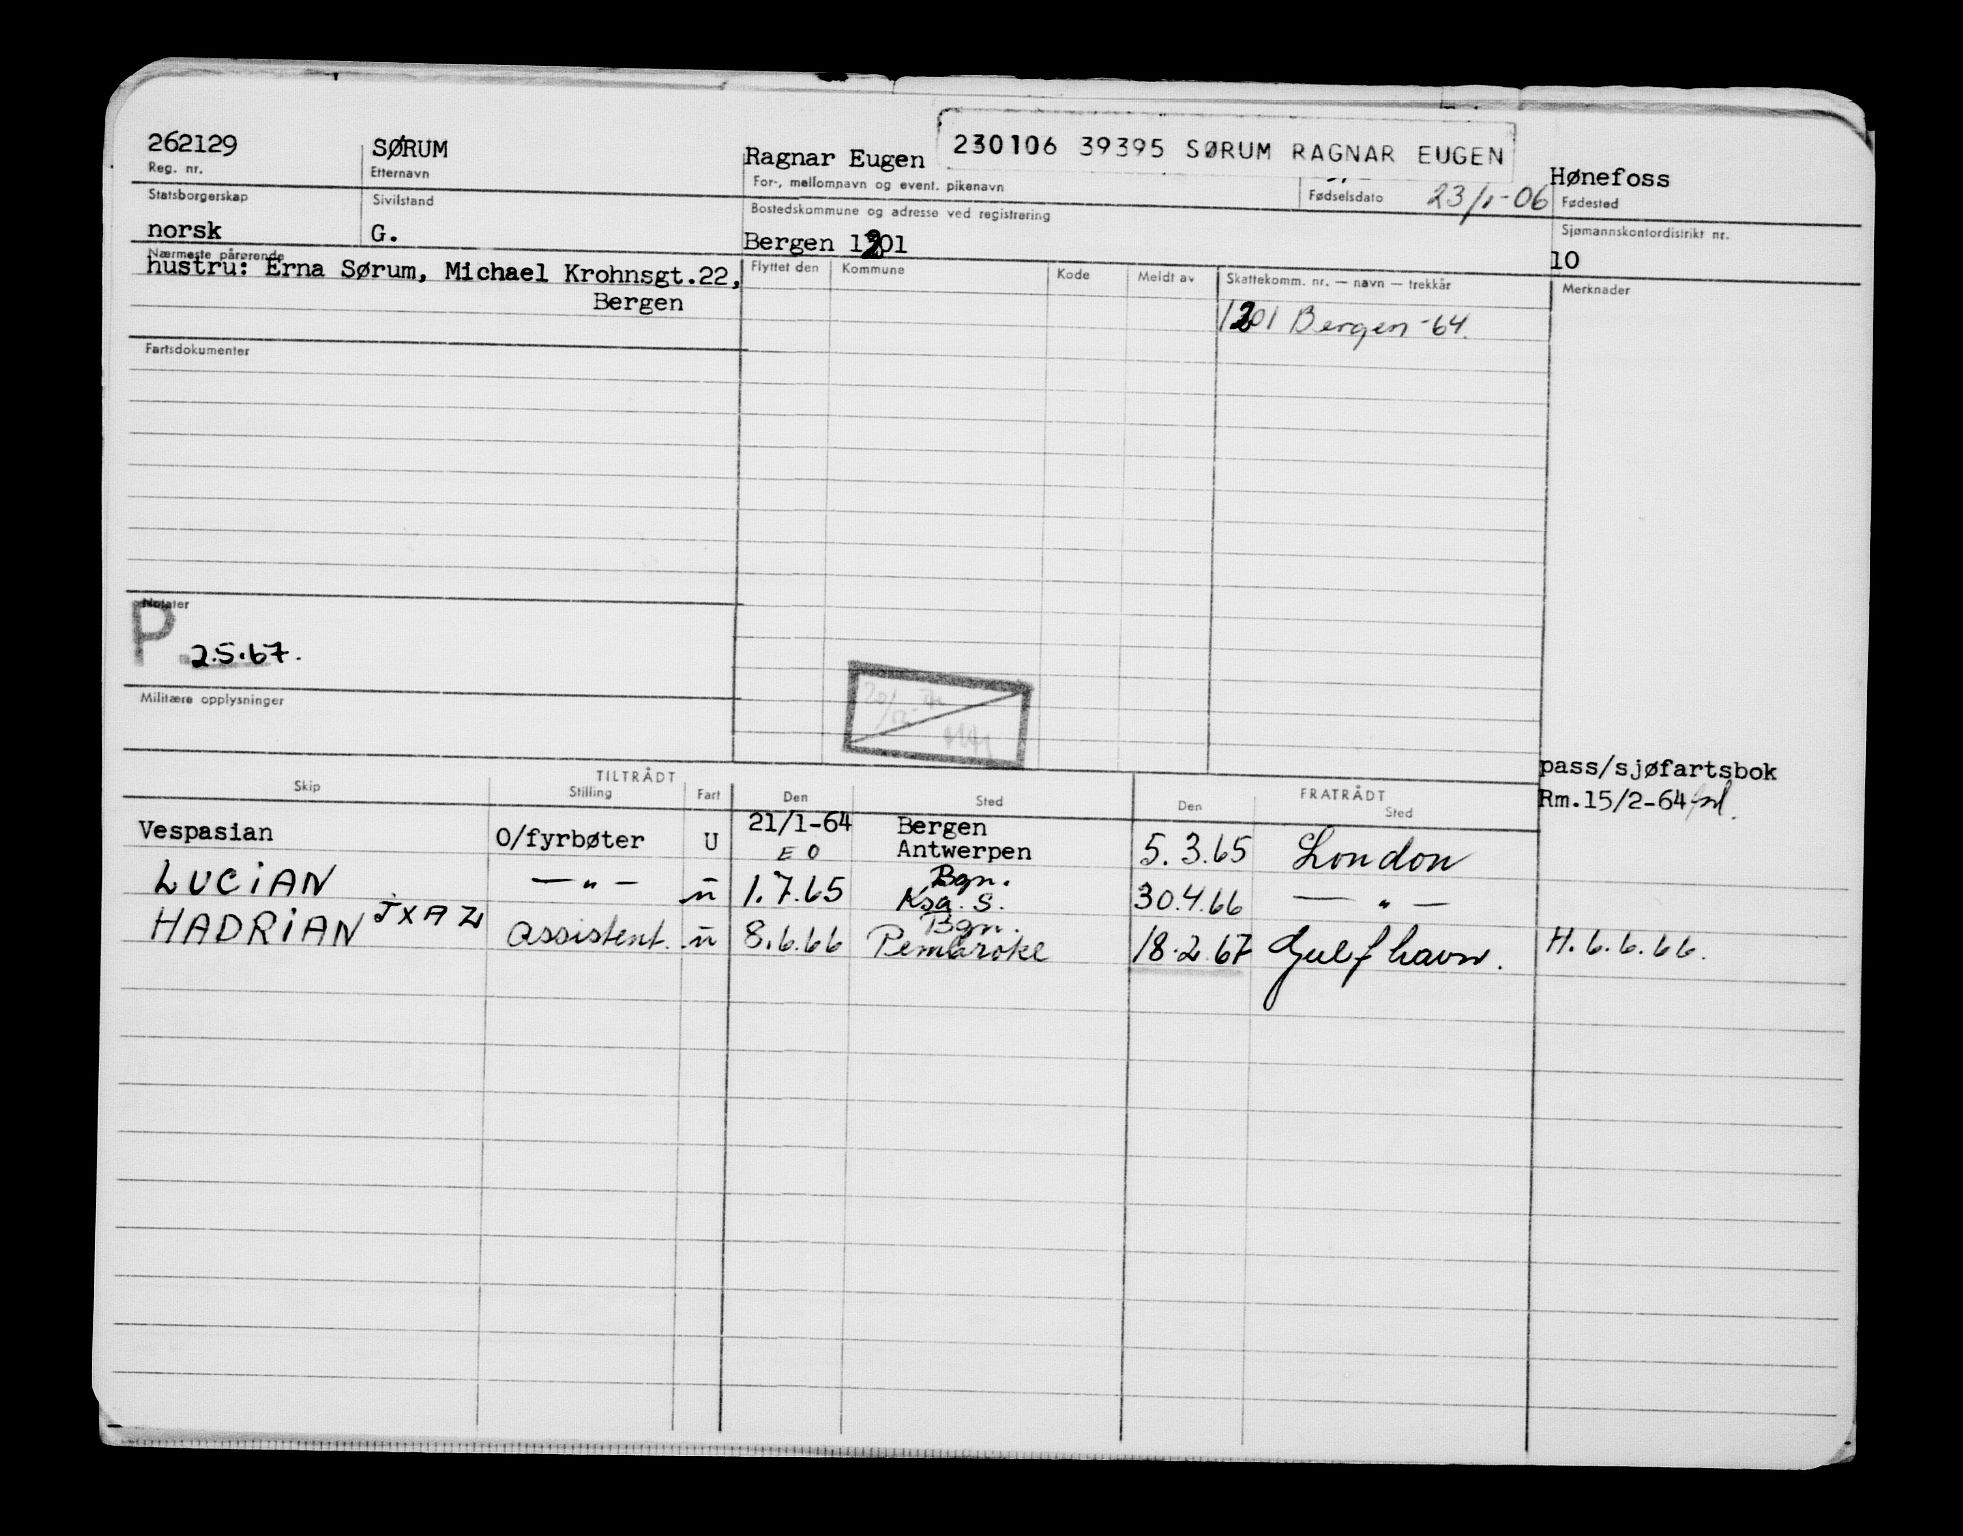 262129 SØRUM Ragnar Eugen 230106 39395 SØRUM RAGNAR EUGEN Hønefoss
Reg. nr. Etternavn For-, mellomnavn og event. pikenavn Fødselsdato 23/1-06 Fødested
Statsborgerskap Sivilstand Bostedskommune og adresse ved registrering Sjømannskontordistrikt nr.
norsk G. Bergen 1201 10
Nærmeste pårørende Flyttet den Kommune Kode Meldt av Skattekomm. nr. — navn — trekkår Merknader
hustru: Erna Sørum, Michael Krohnsgt.22,
Bergen
1201 Bergen -64.
Fartsdokumenter
Notater
P. 2.5.67.
Militære opplysninger
pass/sjøfartsbok
Rm.15/2-64
TILTRÅDT FRATRÅDT
Skip Stilling Fart Den Sted Den Sted
Vespasian O/fyrbøter U 21/1-64 Bergen
E O Antwerpen 5.3.65 London
LUCIAN — " — ū 1.7.65 Bgn.
Ksa. S. 30.4.66 — " —
HADRIAN JXAZ assistent. ū 8.6.66 Bgn.
Pembroke 18.2.67 Gulfhavn. H. 6.6.66.